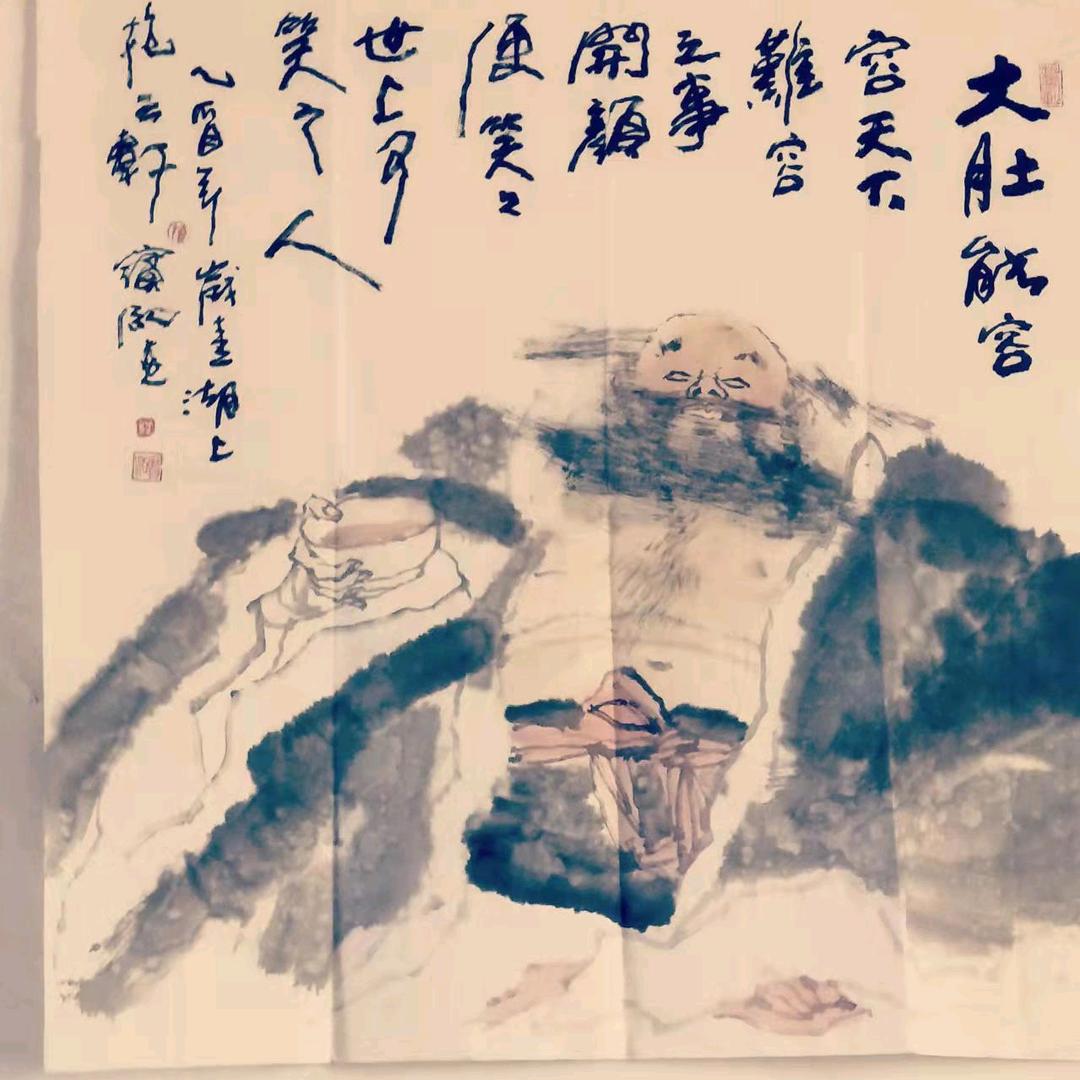 大肚能容
容天下
難容
之事
開顏
便笑笑
世上可
笑之人
乙酉年歲
湖上